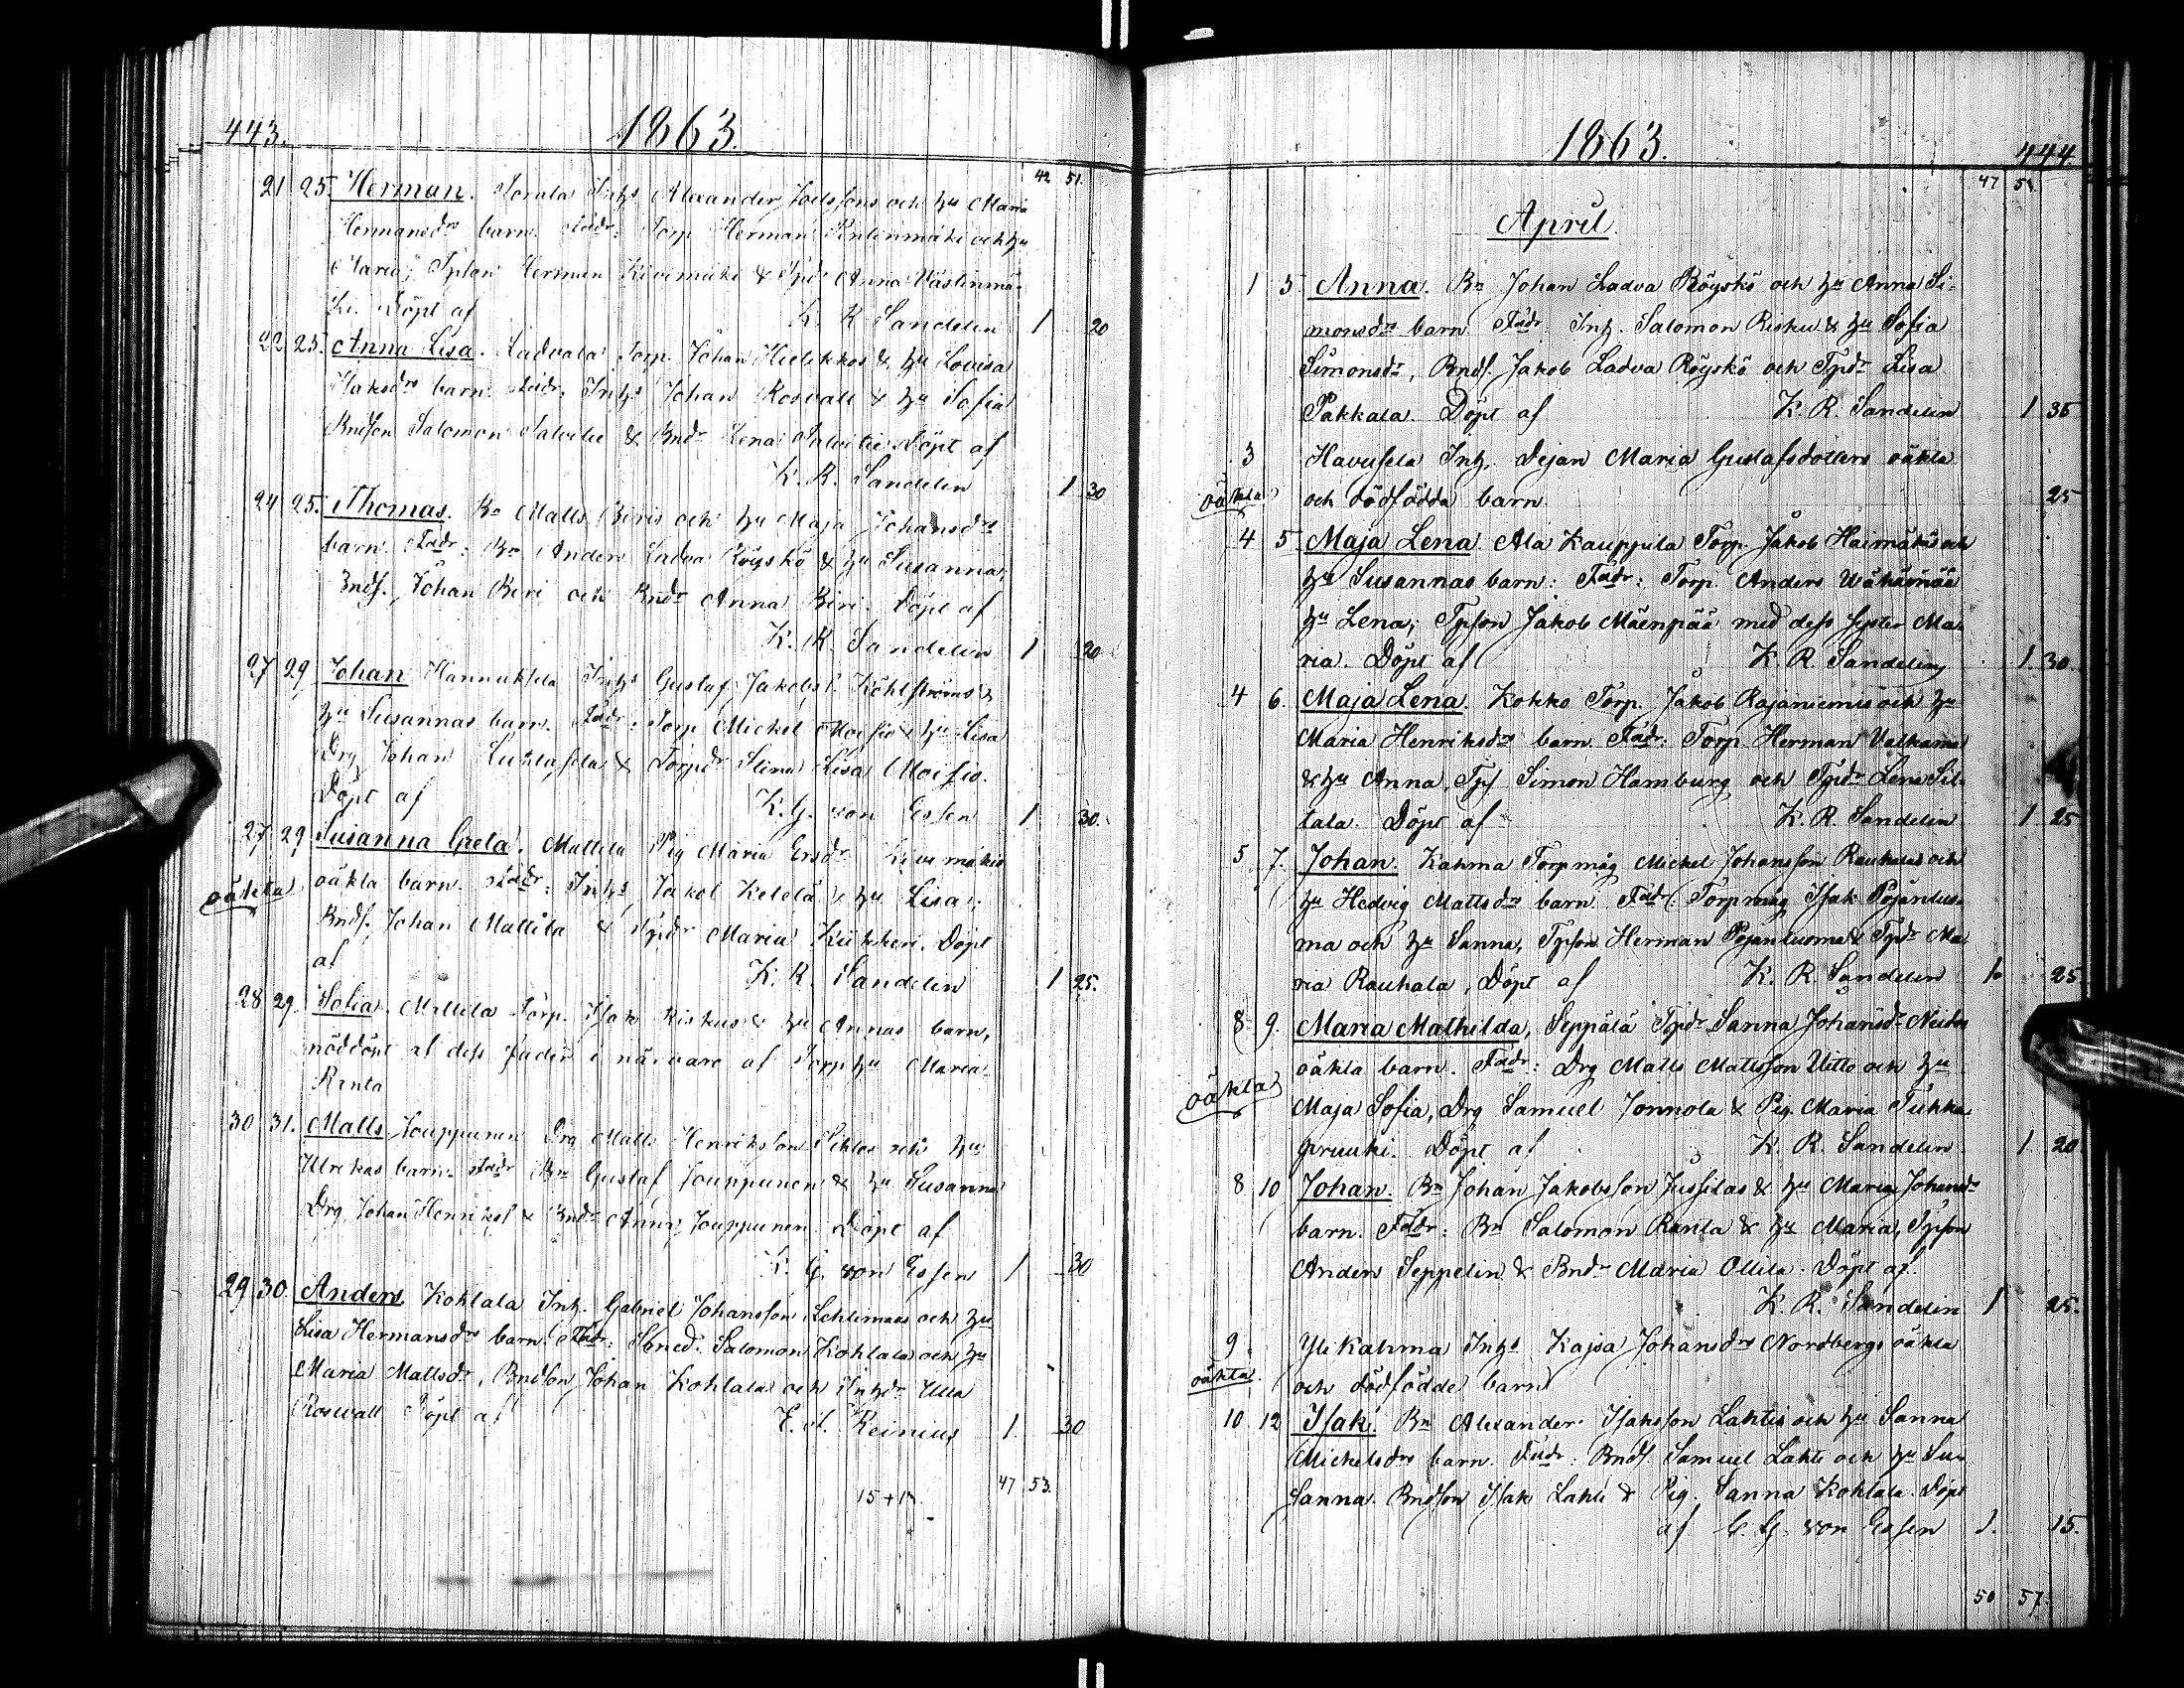 443.
1863.
42 51.
21 25. Herman. Torala Inhs Alexander Joelssons och hu Maria
Hermansdrs barn. Faddr: Torp Herman Rintenmäki och hu
Maria; Tpson Herman Kivimäki & Tpdr Anna Västinmä-
ki. Döpt af K. R. Sandelin 1 20
22 25. Anna Lisa. Ladvala Torp. Johan Hietikkos & hu Lovisa
Isaksdrs barn. Faddr: Inhs Johan Rosvall & hu Sofia
Bndson Salomon & Bndr Lena Döpt af
K. R. Sandelin 1 30
24 25. Thomas. Bn Matts Biris och hu Maja Johansdrs
barn. Faddr: Bn Anders Ladva Röyskö & hu Susanna,
Bndf. Johan Biri och Bndr Anna Biri. Döpt af
K. R. Sandelin 1 20
27 29 Johan Hannuksela Inhs Gustaf Jakobss. Kohlströms &
hu Susannas barn. Faddr: Torp Mickel Moisio & hu Lisa
Drg Johan Luhtasela & Torpdr Stina Lisa Moisio.
Döpt af K. G. von Essen 1 30.
27 29 Susanna Greta. Mattila Pig Maria Ersdr Kivimäkis
oäkta oäkta barn. Faddr: Inhs Jakob Ketelä & hu Lisa;
Bndf. Johan Mattila & Tpdr Maria Kiikkeri. Döpt
af K. R. Sandelin 1 25.
28 29. Sofia. Mattila Torp. Isak Riskus & hu Annas barn,
nöddöpt af dess fader i närvaro af Torp hu Maria
Ranta
30 31. Matts Jouppunen Drg Matts Henriksson och hu
Ulrikas barn. Faddr Bn Gustaf Jouppunen & hu Susanna
Drg Johan Henrikss & Bndr Anna Jouppunen. Döpt af
K. G. von Essen 1 30
29 30. Anders Kohtala Inh. Gabriel Johansson Lehtimäs och hu
Lisa Hermansdrs barn. Faddr: Salomon Kohtala och hu
Maria Mattsdr, Bndson Johan Kohtala och Inhdr Ulla
Roswall Döpt af E. J. Reinius 1. 30
47 53.
1863. 444.
47 51.
April.
1 5. Anna. Bn Johan Ladva Röyskö och hu Anna Si-
monsdrs barn. Faddr: Inh. Salomon Risku & hu Sofia
Simonsdr, Bndf. Jakob Ladva Röyskö och Tpdr Lisa
Pakkala. Döpt af K. R. Sandelin 1 35
3 Havusela Inh. Dejan Maria Gustafsdotters oäkta
oäkta och dödfödda barn. 25
4 5 Maja Lena. Ala Kauppila Torp. Jakob Haimäkis och
hu Susannas barn: Faddr: Torp. Anders Wähämää
hu Lena; Tpson Jakob Mäenpää med dess syster Ma-
ria. Döpt af K. R. Sandelin 1 30.
4 6. Maja Lena. Kokko Torp. Jakob Rajaniemis och hu
Maria Henriksdrs barn. Faddr: Torp. Herman Valkama
& hu Anna, Tps Simon Hamburg och Tpdr Lena Sil-
tala. Döpt af K. R. Sandelin 1 25
5 7. Johan. Kahma Torpmåg Mickel Johansson Rauhalas och
hu Hedvig Mattsdrs barn. Faddr: Torpmåg Isak Pojanluo-
ma och hu Sanna, Tpson Herman Pojanluoma & Tpdr Ma-
ria Rauhala, Döpt af K. R. Sandelin 1. 25
8 9. Maria Mathilda, Seppälä Tpdr Sanna Johansdr
oäkta oäkta barn. Faddr: Drg Matts Mattsson Uitto och hu
Maja Sofia, Drg Samuel Jonnola & Pig. Maria Tuhka-
pruuki. Döpt af K. R. Sandelin 1. 20
8 10 Johan. Bn Johan Jakobsson Jussilas & hu Maria Johansdrs
barn. Faddr: Bn Salomon Ranta & hu Maria, Tpson
Anders Seppelin & Bndr Maria Ollila. Döpt af.
K. R. Sandelin 1 25.
9 Yli Kahma Inhs Kajsa Johansdrs Nordbergs oäkta
oäkta och dödfödde barn
10 12 Isak. Bn Alexander Isaksson Lahtis och hu Sanna
Mickelsdrs barn. Faddr: Bndf. Samuel Lahti och hu Su-
sanna. Bndson Isak Lahti & Pig. Sanna Kohtala. Döpt
af K. G. von Essen 1. 15.
50 57.